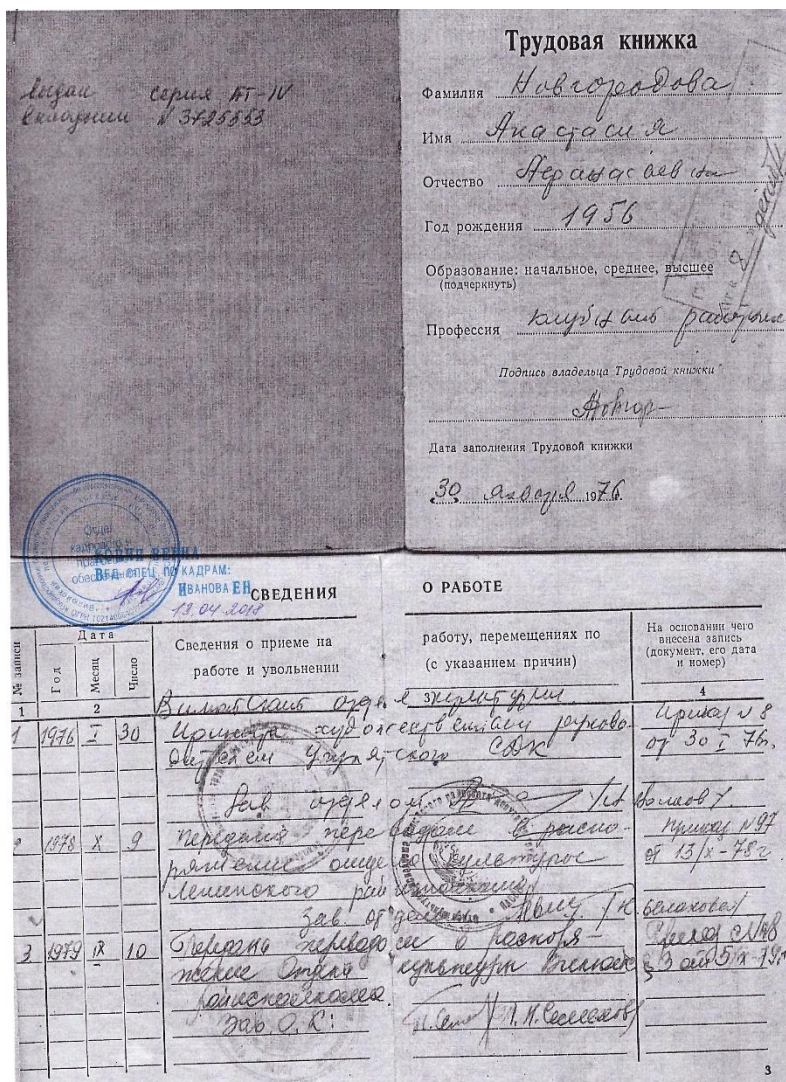 выдан серия АТ-IV
вкладыш № 3725553
Трудовая книжка
Фамилия Новгородова
Имя Анастасия
Отчество Афанасьевна
Год рождения 1956
Образование: начальное, среднее, высшее
(подчеркнуть)
Профессия клубный работник
Подпись владельца Трудовой книжки
Новгор-
Дата заполнения Трудовой книжки
30 января 1976
Отдел
кадрового и
КОПИЯ ВЕРНА
ВЕД. СПЕЦ ПО КАДРАМ:
ИВАНОВА ЕН
13.04.2018
СВЕДЕНИЯ О РАБОТЕ
№ записи
Дата
Год
Месяц
Число
Сведения о приеме на работу, перемещениях по
работе и увольнении (с указанием причин)
На основании чего
внесена запись
(документ, его дата
и номер)
1 2 3 4
Вилюйский отдел культуры
1 1976 I 30 Принята художественным руково- Приказ № 8
дителем СДК от 30 I 76г.
Зав отделом
2 1978 X 9 Передана переводом в распо- Приказ № 97
ряжение отдела культуры от 13/X-78г
Ленинского райисполкома
Зав. отделом
3 1979 IX 10 Передана переводом в распоря-
жение Отдела культуры Вилюйск
райисполкома.
Зав. О.К:
3